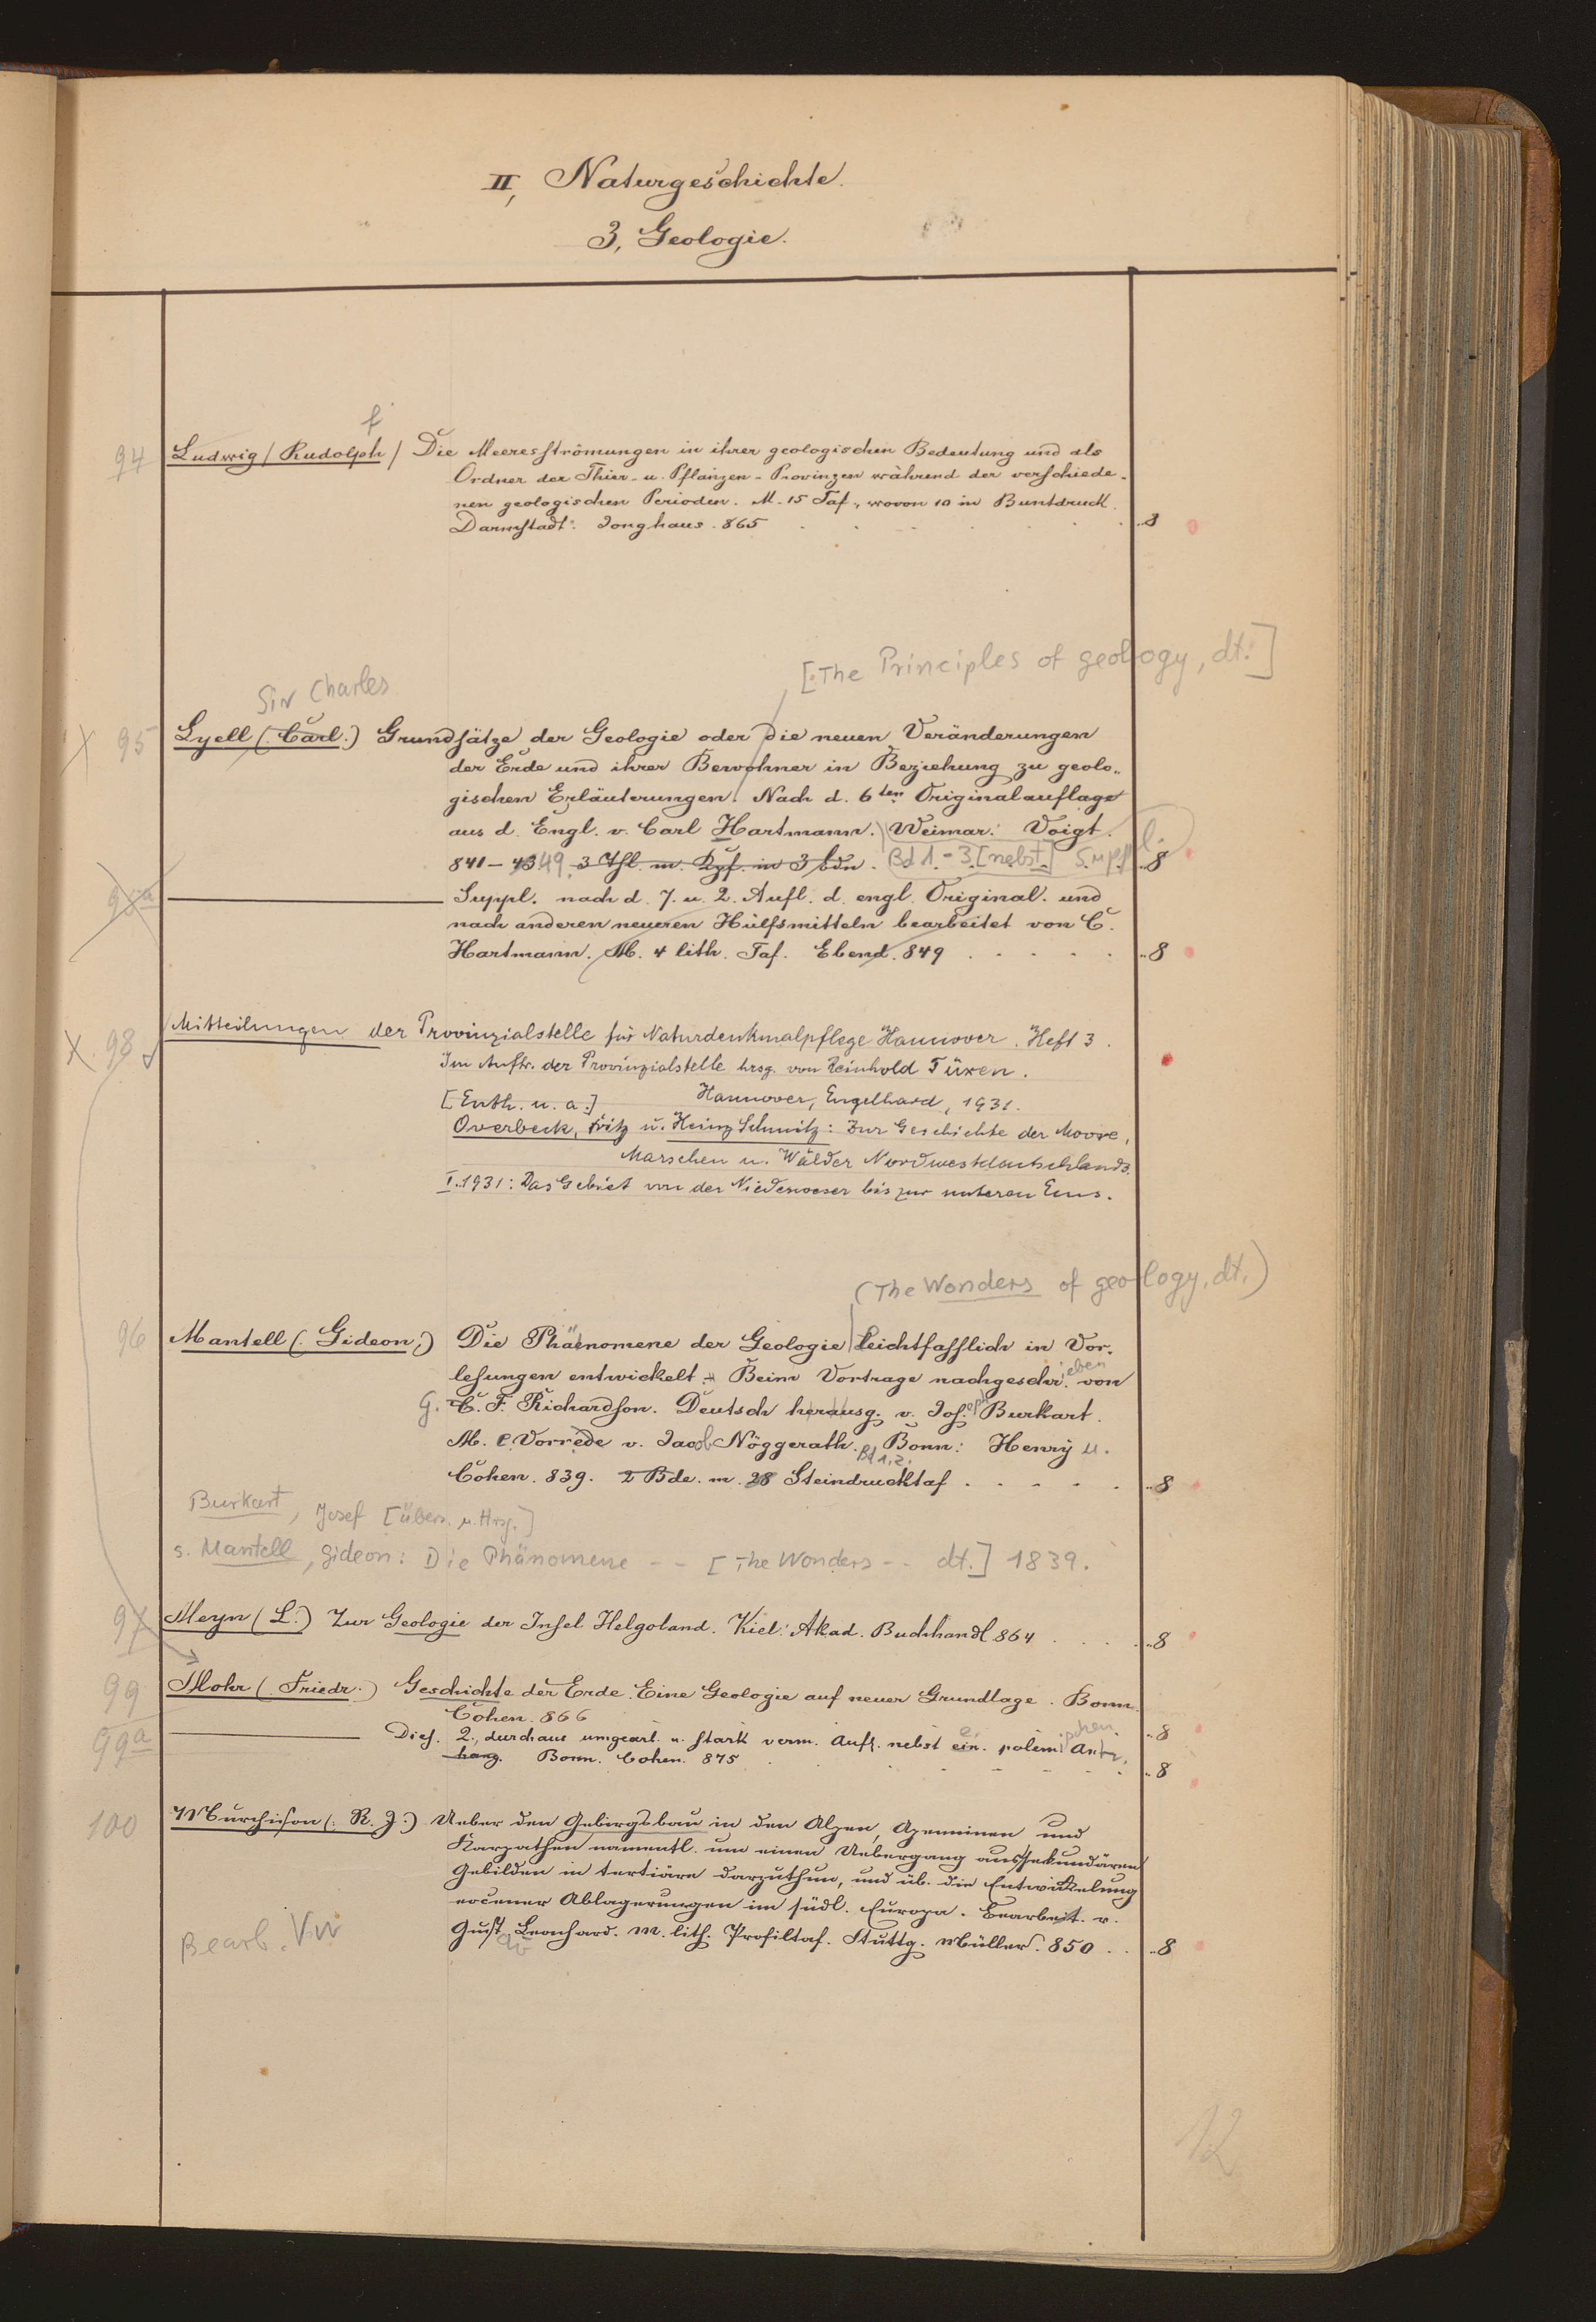 II, Naturgeschichte.
3, Geologie.
f
94 Ludwig (Rudolph) Die Meeresströmungen in ihrer geologischen Bedeutung und als
Ordner der Thier- u. Pflanzen-Provinzen während der verschiede-
nen geologischen Perioden. M. 15 Taf., wovon 10 in Buntdruck.
Darmstadt: Jonghaus. 865 . . . . . . „8
[: The Principles of geology, dt.]
Sir Charles
X 95 Lyell (: Carl :) Grundsätze der Geologie oder die neuen Veränderungen
der Erde und ihrer Bewohner in Beziehung zu geolo„
gischen Erläuterungen. Nach d. 6ten Originalauflage
aus d. Engl. v. Carl Hartmann. Weimar: Voigt.
841–43 49. 3 Thl. m. Kpf. in 3 Bdn. Bd 1-3 [nebst] Suppl. „8
95a ——— Suppl. nach d. 7. u. 2. Aufl. d. engl. Original. und
nach anderen neueren Hülfsmitteln bearbeitet von C.
Hartmann. M. 4 lith. Taf. Ebend. 849 . . . . . „8
X 98 Mitteilungen der Provinzialstelle für Naturdenkmalpflege Hannover. Heft 3.
Im Auftr. der Provinzialstelle hrsg. von Reinhold Tüxen.
[Enth. u. a.] Hannover, Engelhard, 1931.
Overbeck, Fritz u. Heinz Schmitz: Zur Geschichte der Moore,
Marschen u. Wälder Nordwestdeutschlands.
I. 1931: Das Gebiet von der Niederweser bis zur unteren Ems.
(The Wonders of geology, dt.)
96 Mantell (: Gideon :) Die Phänomene der Geologie leichtfasslich in Vor-
lesungen entwickelt. Beim Vortrage nachgeschrieben von
G. C. F. Richardson. Deutsch herausg. v. Joseph Burkart.
M. e. Vorrede v. Jacob Nöggerath. Bonn: Henry u.
Bd 1.2.
Cohen. 839. 2 Bde. m. 28 Steindrucktaf . . . . . „8
Burkart, Josef [Übers. u. Hrsg.]
s. Mantell, Gideon: Die Phänomene -- [The Wonders -- dt.] 1839.
97 Meyn (L.) Zur Geologie der Insel Helgoland. Kiel: Akad. Buchhandl 864 . . . . „8
99 Mohr (: Friedr. :) Geschichte der Erde. Eine Geologie auf neuer Grundlage. Bonn
Cohen. 866 „8
99a ——— Dies. 2., durchaus umgearb. u. stark verm. Aufl. nebst ein. polemischen An-
hang. Bonn. Cohen. 875 . . . . . „8
100 Murchison (: R. J. :) Ueber den Gebirgsbau in den Alpen, Apenninen und
Karpathen namentl. um einen Uebergang aus sekundären
Gebilden in tertiäre darzuthun, und üb. die Entwickelung
eocener Ablagerungen im südl. Europa. Bearbeit. v.
Gustav Leonhard. M. lith. Profiltaf. Stuttg. Müller. 850 . . „8
Bearb. Vw
12